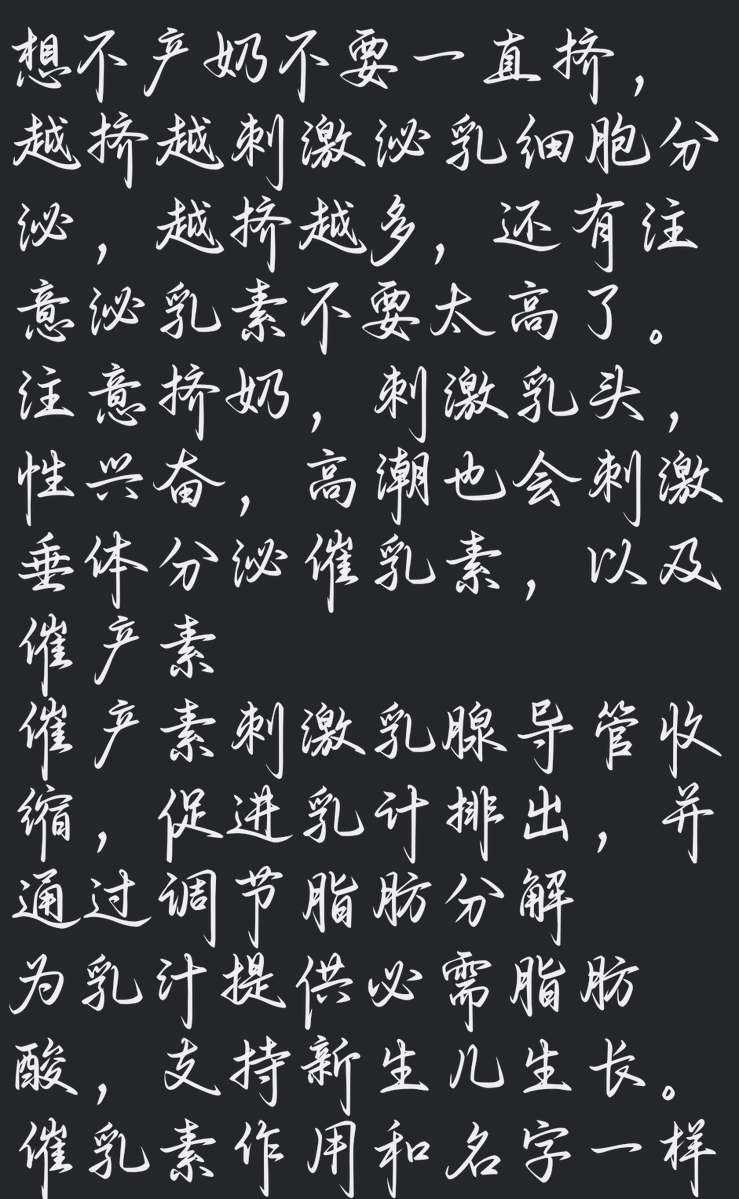 想不产奶不要一直挤，
越挤越刺激泌乳细胞分
泌，越挤越多，还有注
意泌乳素不要太高了。
注意挤奶，刺激乳头，
性兴奋，高潮也会刺激
垂体分泌催乳素，以及
催产素
催产素刺激乳腺导管收
缩，促进乳计排出，并
通过调节脂肪分解
为乳汁提供必需脂肪
酸，支持新生儿生长。
催乳素作用和名字一样